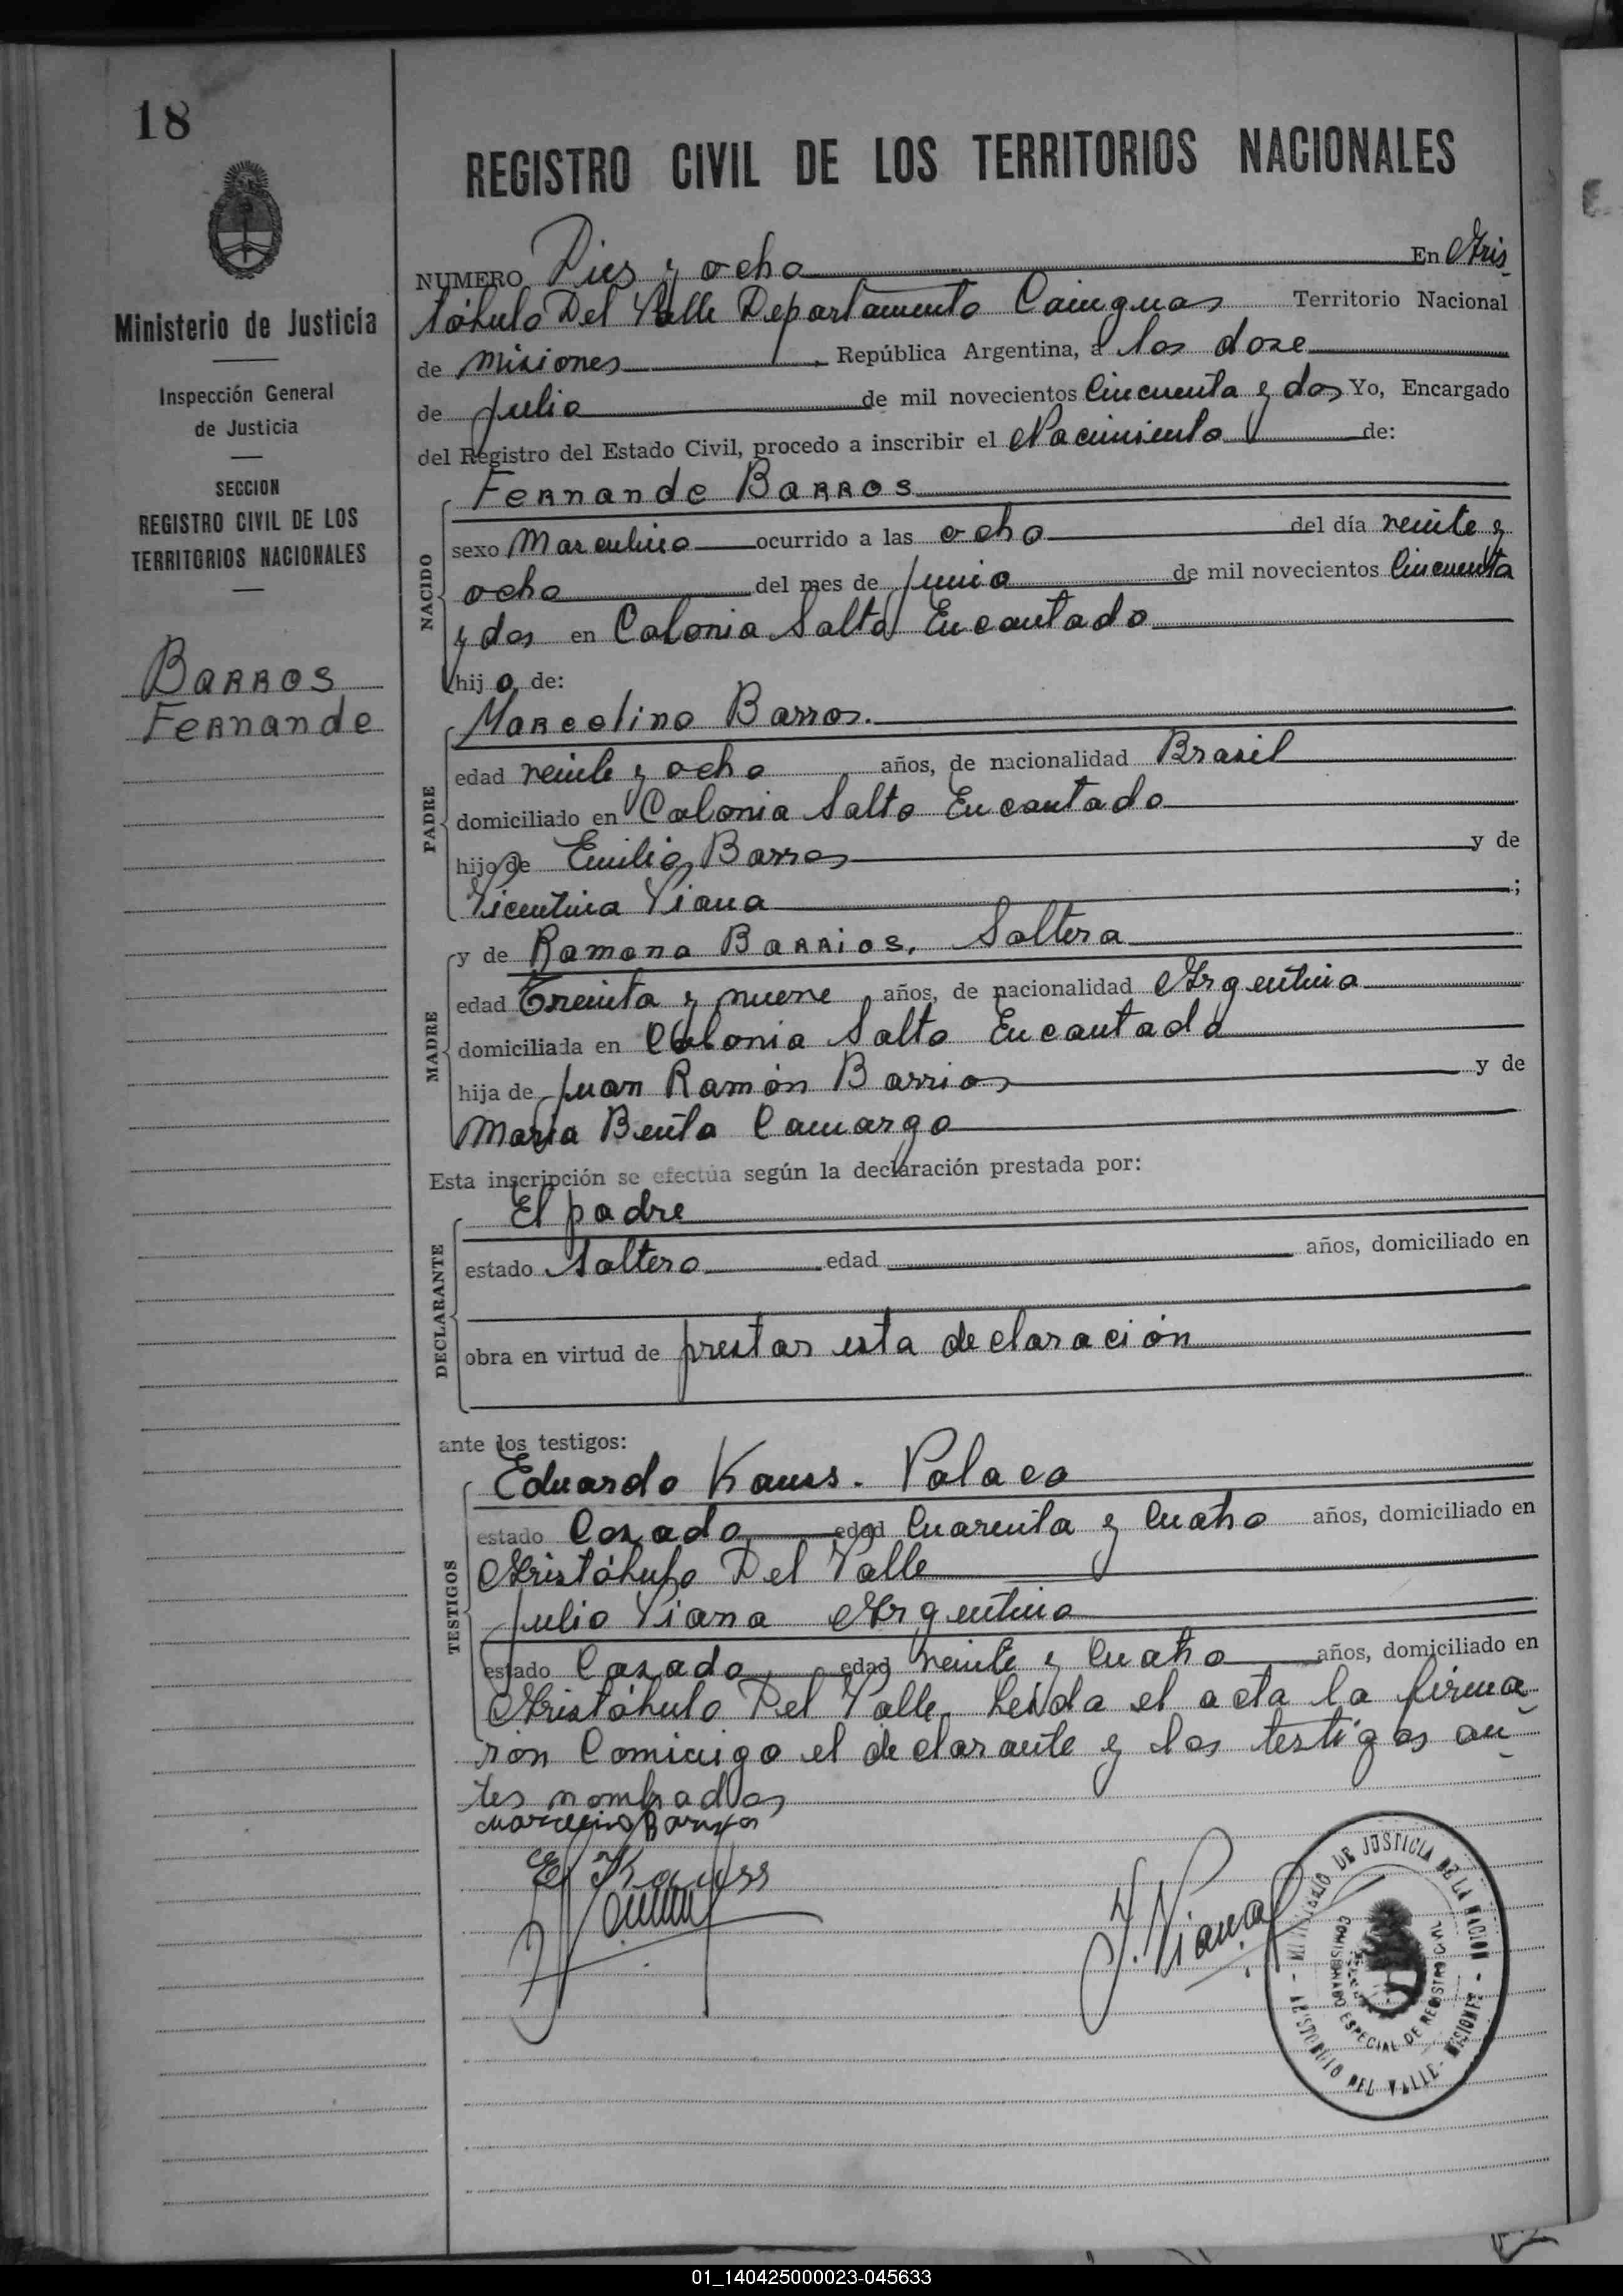 18
Ministerio de Justicia
Inspección General
de Justicia
SECCION
REGISTRO CIVIL DE LOS
TERRITORIOS NACIONALES
BARROS
Fernande
REGISTRO CIVIL DE LOS TERRITORIOS NACIONALES
NUMERO Dies y ocho En Aris
tóbulo Del Valle Departamento Cainguas Territorio Nacional
de Misiones, República Argentina, a los doze
de julio de mil novecientos Cincuenta y dos Yo, Encargado
del Registro del Estado Civil, procedo a inscribir el Nacimiento de:
NACIDO
Fernande Barros
sexo Masculino ocurrido a las ocho del día veinte y
ocho del mes de junio de mil novecientos Cincuenta
y dos en Colonia Salto Encantado
hij o de:
PADRE
Marcelino Barros.
edad veinte y ocho años, de nacionalidad Brasil
domiciliado en Colonia Salto Encantado
hijo de Emilio Barros y de
Vicentina Viana ;
MADRE
y de Ramona Barrios. Soltera
edad Treinta y nueve años, de nacionalidad Argentina
domiciliada en Colonia Salto Encantado
hija de Juan Ramón Barrios y de
María Benita Camargo
Esta inscripción se efectúa según la declaración prestada por:
DECLARANTE
El padre
estado Soltero edad años, domiciliado en
obra en virtud de prestar esta declaración
ante los testigos:
TESTIGOS
Eduardo Kauss. Polaco
estado Casado edad Cuarenta y Cuatro años, domiciliado en
Aristóbulo Del Valle
Julio Viana Argentino
estado Casado edad veinte y Cuatro años, domiciliado en
Aristóbulo Del Valle Leida el acta la firma
ron Comigo el declarante y los testigos an
tes nombrados
Marcelino Barros
E Kauss
J. Viana
MINISTERIO DE JUSTICIA DE LA NACION
COMISION ESPECIAL DE REGISTRO CIVIL
- ARISTOBULO DEL VALLE - MISIONES -
01_140425000023-045633